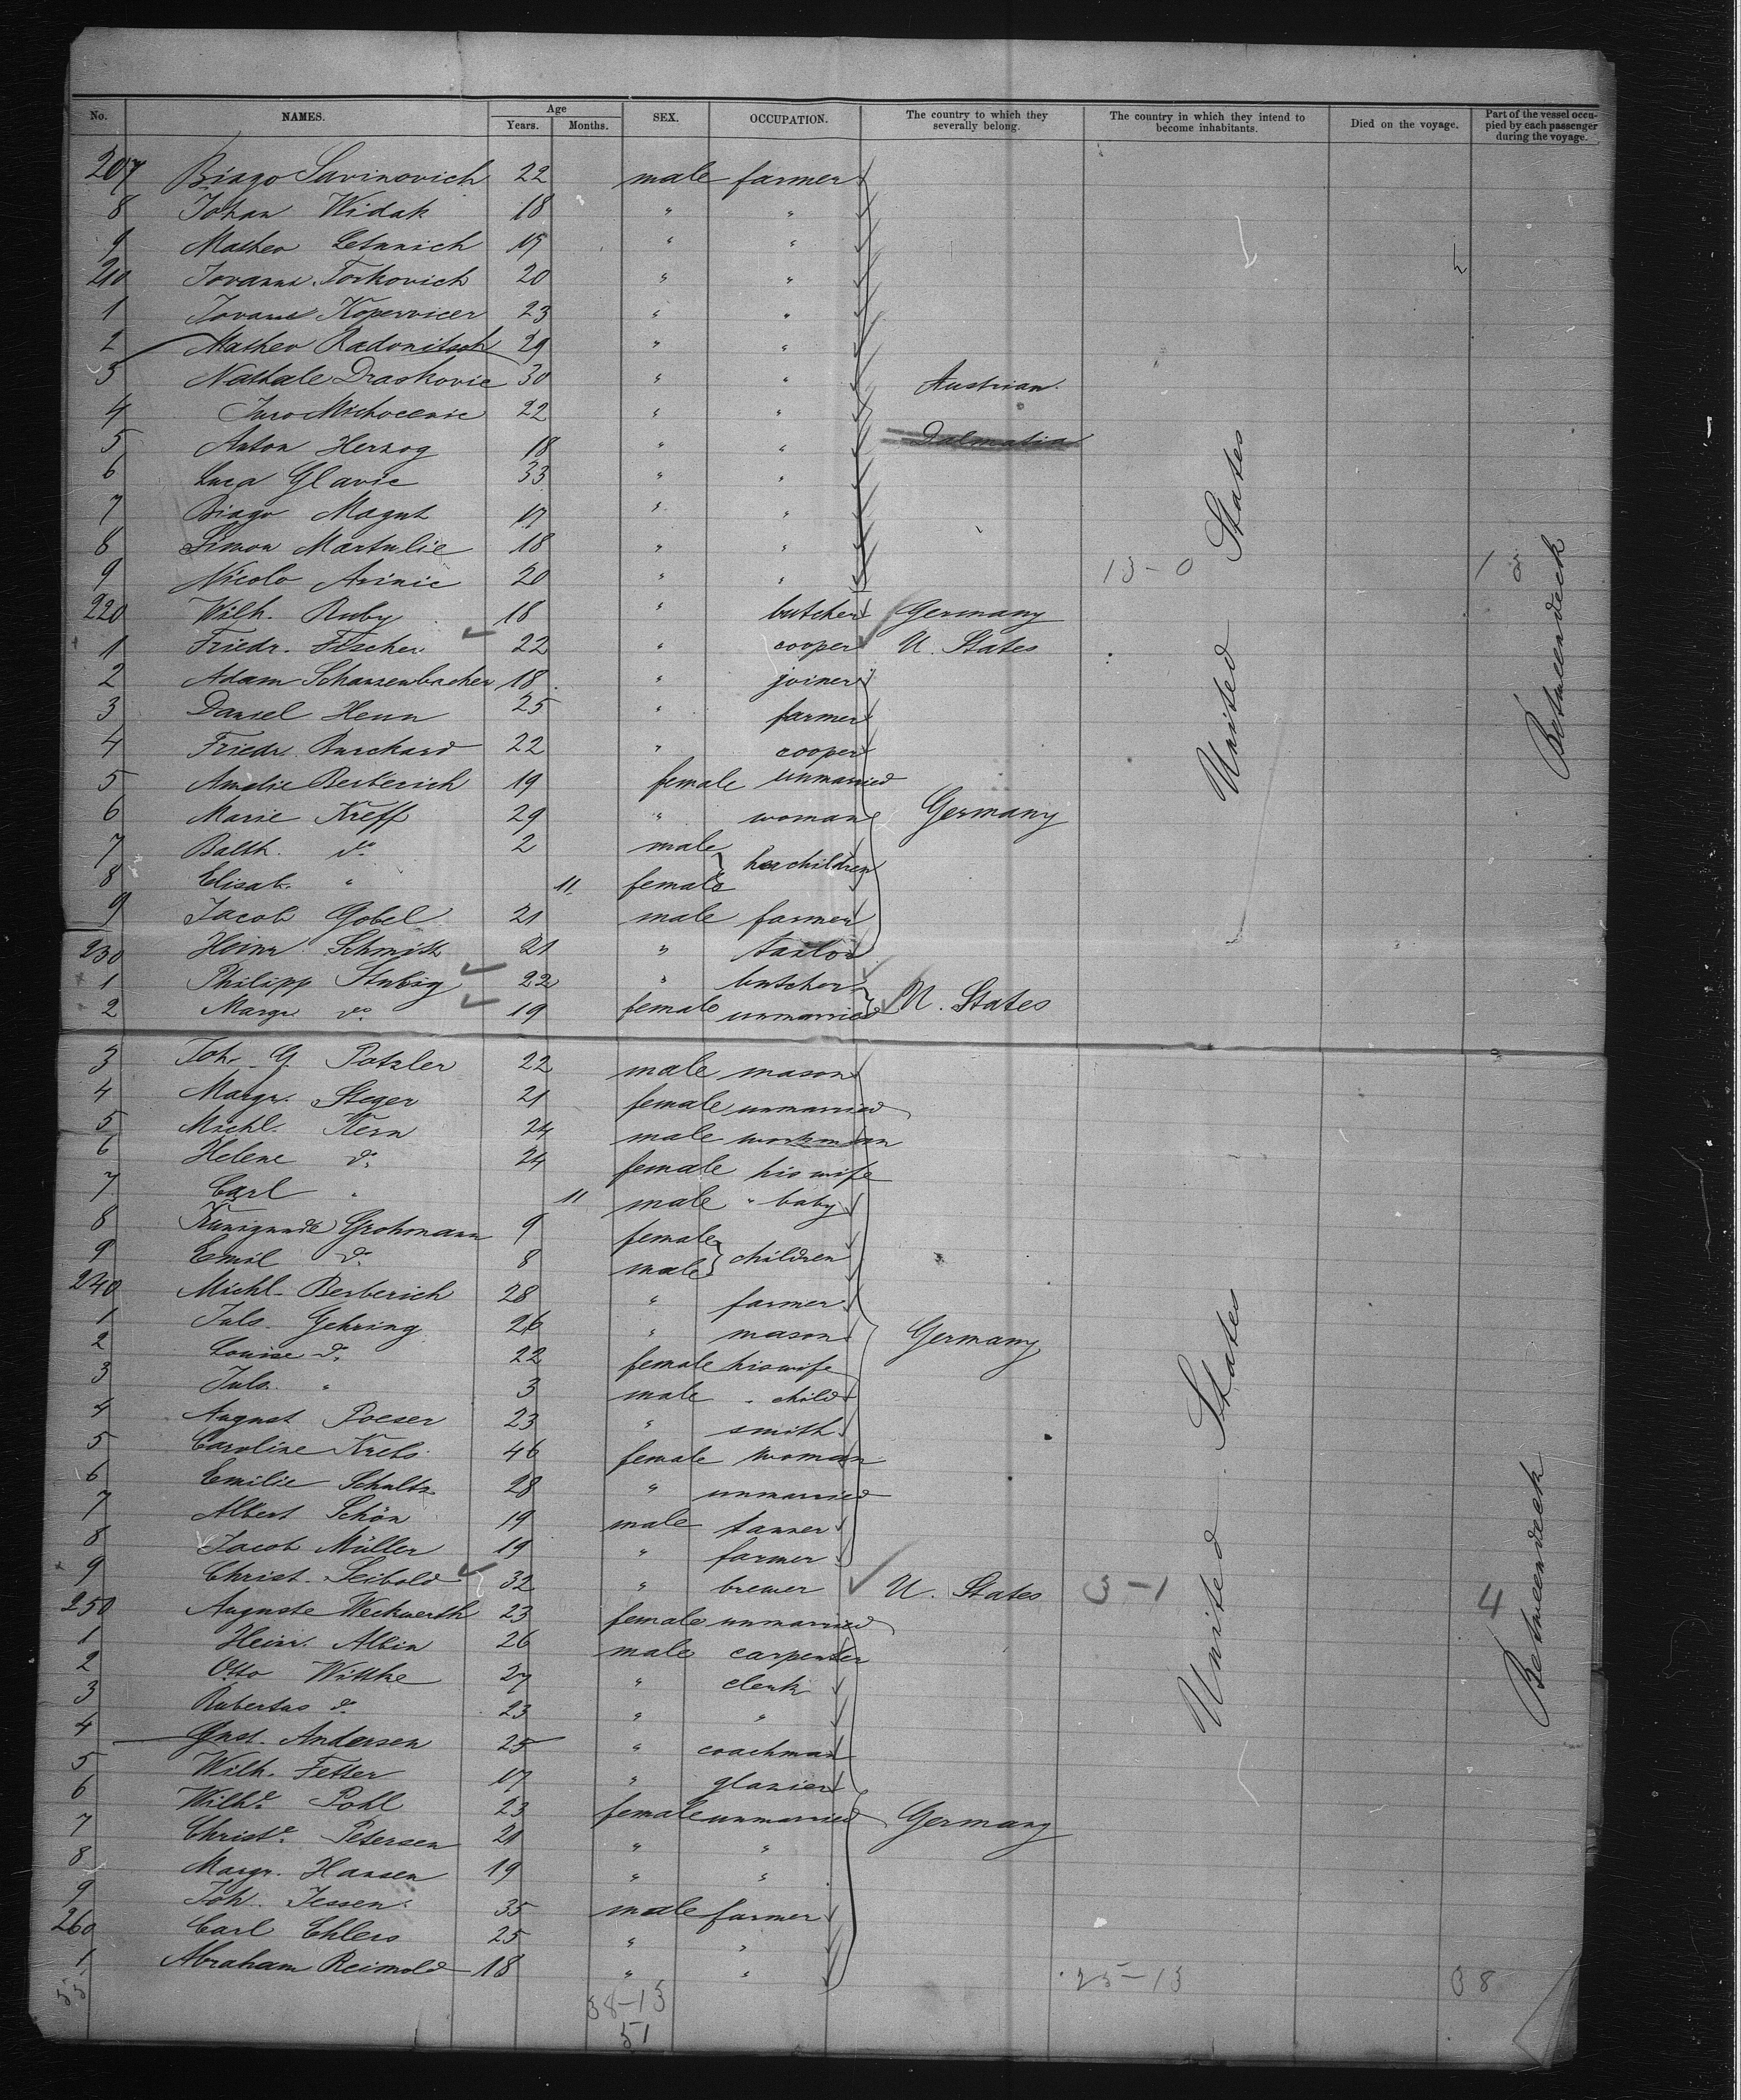 No. NAMES. Age Years. Months. SEX. OCCUPATION. The country to which they severally belong. The country in which they intend to become inhabitants. Died on the voyage. Part of the vessel occupied by each passenger during the voyage.
207 Biago Savinovich 22 male farmer
8 Johan Widak 18 " "
9 Matheo Letunich 19 " "
210 Jovann Torkovich 20 " "
1 Jovann Kopervicer 23 " "
2 Matheo Radonitsch 29 " "
3 Nathale Draskovic 30 " " Austrian.
4 Juro 22 " "
5 Anton Herzog 18 " " Dalmatia
6 Luca Glavic 33 " "
7 Biago Magut 17 " "
8 Simon Martulic 18 " "
9 Nicolo Arinic 20 " " 13-0
220 Wilh. Ruby 18 " butcher Germany
1 Friedr. Fischer 22 " cooper U. States
2 Adam Schanzenbacher 18 " joiner
3 Daniel Henn 25 " farmer
4 Friedr. Burchard 22 " cooper United States Betweendeck
5 Amalie Berberich 19 female unmarried
6 Marie Kreff 29 " woman Germany
7 Balth. do 2 male her children
8 Elisab. " 11 female
9 Jacob Gobel 21 male farmer
230 Heinr Schmitz 21 " tailor
1 Philipp Stubig 22 " butcher
2 Margr. do 19 female unmarried U. States
3 Joh. G. Potzler 22 male mason
4 Margr. Steger 21 female unmarried
5 Michl. Kern 24 male workman
6 Helene do 24 female his wife
7 Carl " 11 male " baby
8 Kunigunde Grohmann 9 female children
9 Emil do 8 male
240 Michl. Berberich 28 " farmer
1 Juls. Gehring 26 " mason Germany
2 Louise do 22 female his wife
3 Juls. " 3 male " child
4 August Poeser 23 " smith
5 Caroline Krebs 46 female woman
6 Emilie Schultz 28 " unmarried
7 Albert Schön 19 male tanner
8 Jacob Müller 19 " farmer
9 Christ. Seibold 32 " brewer U. States 3-1 United States 4 Betweendeck
250 Auguste Weckwerth 23 female unmarried
1 Heinr. Albin 26 male carpenter
2 Otto Wittke 27 " clerk
3 Rubertus do 23 " "
4 Gust. Andersen 25 " coachman
5 Wilh. Fetter 17 " glazier
6 Wilhe. Pohl 23 female unmarried Germany
7 Christe. Petersen 21 " "
8 Margr. Hansen 19 " "
9 Joh. Jessen 35 male farmer
260 Carl Ehlers 25 " "
1 Abraham Reimold 18 " " 25-13 38
55 38-13
51